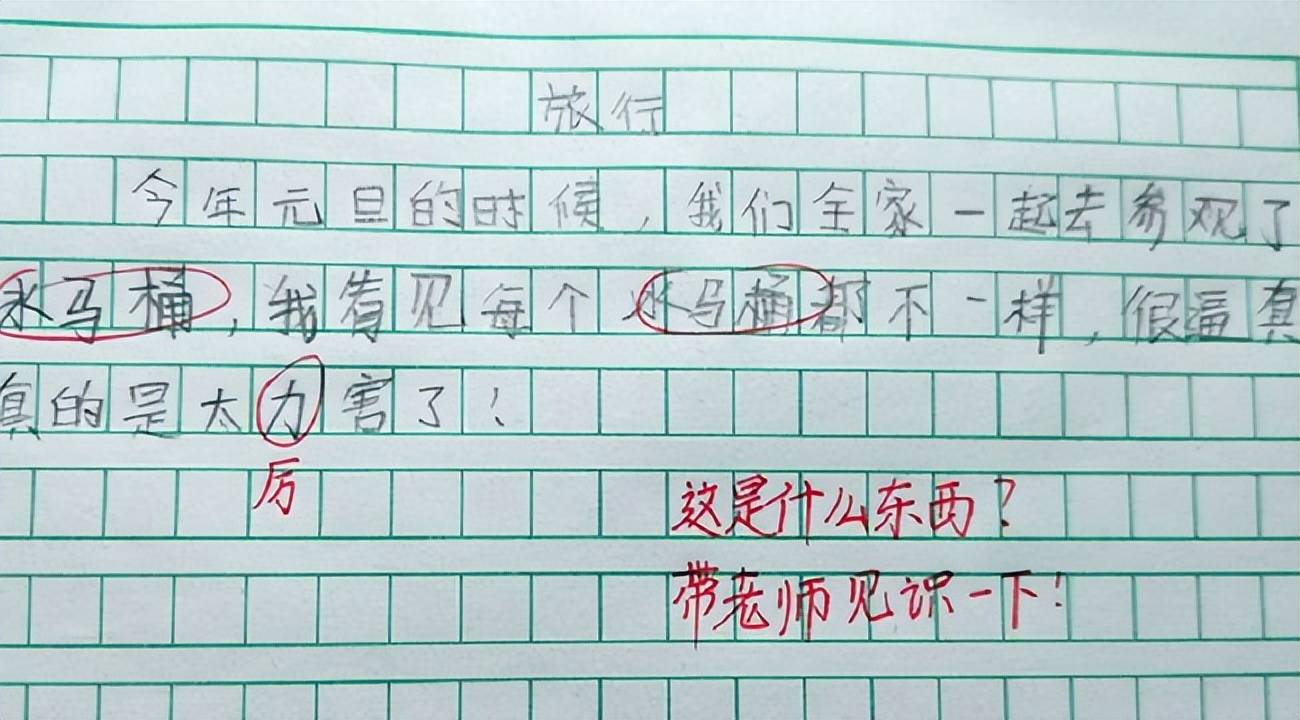 旅行
今年元旦的时候，我们全家一起去参观了
水马桶，我看见每个水马桶都不一样，假逼真
真的是太力害了！
厉
这是什么东西？
带老师见识一下！